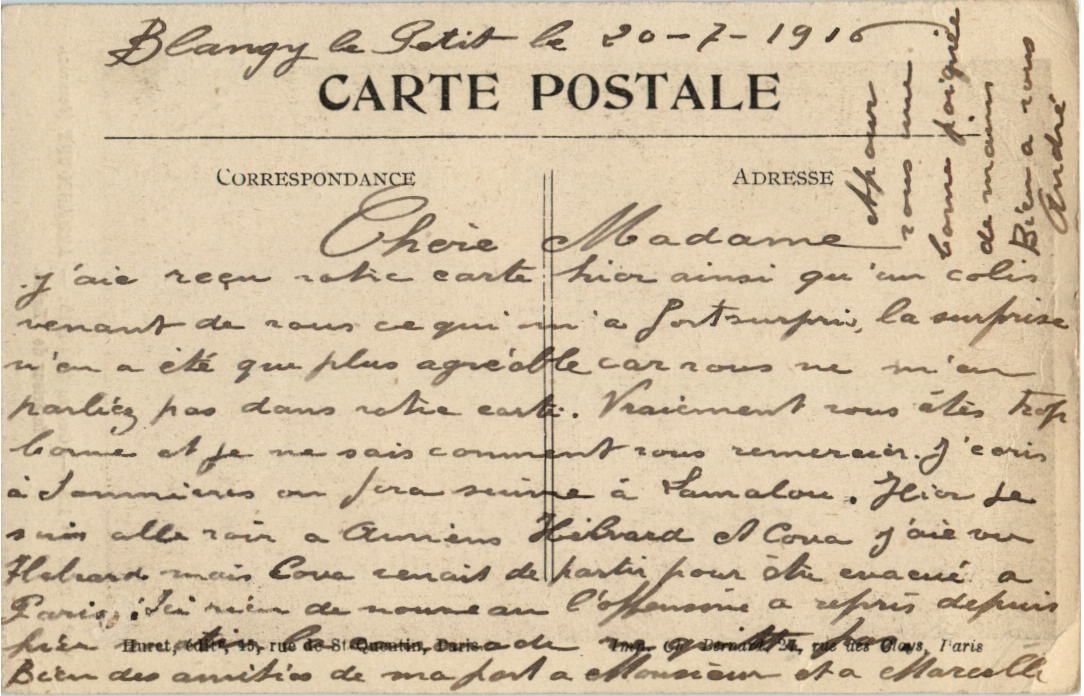 Blangy le Petit le 20-7-1916
CARTE POSTALE
CORRESPONDANCE
ADRESSE
Chère Madame
j'aie reçu votre carte hier ainsi qu'un colis
venant de vous ce qui m'a fort surpris, la surprise
n'en a été que plus agréable car vous ne m'en
parliez pas dans votre carte. Vraiement vous êtes trop
bonne et je ne sais comment vous remercier. J'écris
à on fera suivre à Lamalou. Hier je
suis allé voir a Amiens Hébrard et Cova j'aie vu
Hebrard mais Cova venait de partir pour être evacué a
Paris. Ici rien de nouveau l'offensive a repris depuis
hier
Huret, édit., 15, rue de St-Quentin, Paris
Imp. Ch. Bernard, 27, rue des Cloys, Paris
Bien des amitiés de ma part a Monsieur et a Marcelle
A pour
vous une
bonne poignée
de mains
Bien a vous
André